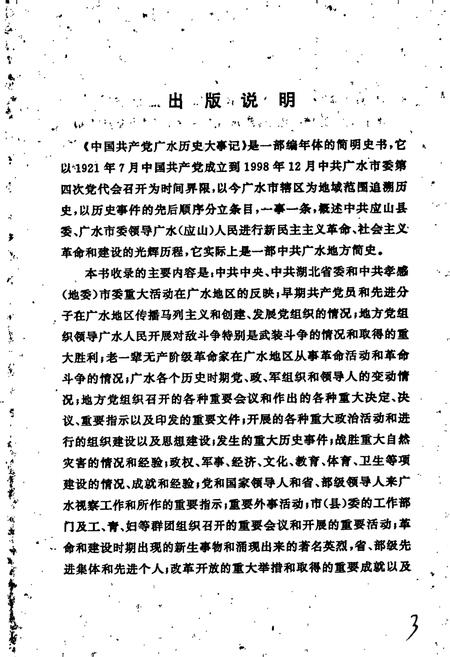 出版说明
《中国共产党广水历史大事记》是一部编年体的简明史书,它
以1921年7月中国共产党成立到1998年12月中共广水市委第
四次党代会召开为时间界限,以今广水市辖区为地域范围追溯历
史,以历史事件的先后顺序分立条目,一事一条,概述中共应山县
委、广水市委领导广水(应山)人民进行新民主主义革命、社会主义
革命和建设的光辉历程,它实际上是一部中共广水地方简史。
本书收录的主要内容是:中共中央、中共湖北省委和中共孝感
(地委)市委重大活动在广水地区的反映;早期共产党员和先进分
子在广水地区传播马列主义和创建、发展党组织的情况;地方党组
织领导广水人民开展对敌斗争特别是武装斗争的情况和取得的重
大胜利;老一辈无产阶级革命家在广水地区从事革命活动和革命
斗争的情况;广水各个历史时期党、政、军组织和领导人的变动情
况;地方党组织召开的各种重要会议和作出的各种重大决定、决
议、重要指示以及印发的重要文件;开展的各种重大政治活动和进
行的组织建设以及思想建设;发生的重大历史事件;战胜重大自然
灾害的情况和经验;政权、军事、经济、文化、教育、体育、卫生等项
建设的情况、成就和经验;党和国家领导人和省、部级领导人来广
水视察工作和所作的重要指示;重要外事活动;市(县)委的工作部
门及工、青、妇等群团组织召开的重要会议和开展的重要活动;革
命和建设时期出现的新生事物和涌现出来的著名英烈,省、部级先
进集体和先进个人;改革开放的重大举措和取得的重要成就以及
3